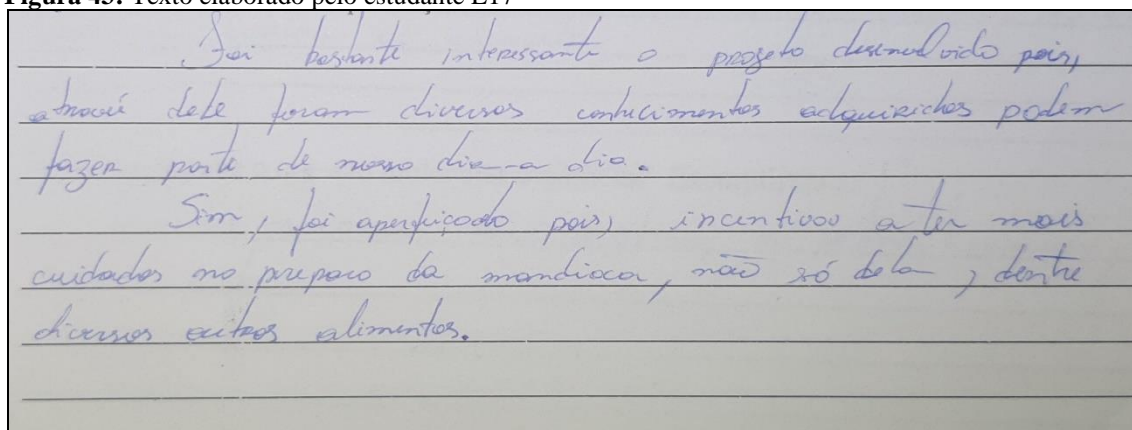 Figura 43: Texto elaborado pelo estudante E17
Foi bastante interessante o projeto desenvolvido pois,
atravéi dele foram diversos conhecimentos adquiridos podem
fazer parte de nosso dia-a dia.
Sim, foi aperfeiçoado pois, incentivou a ter mais
cuidados no preparo da mandioca, não só dela, dentre
diversos outros alimentos.